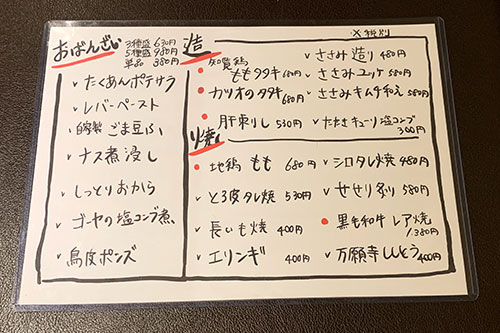 ※税別
おばんざい
3種盛 630円
5種盛 980円
単品 380円
✓たくあんポテサラ
✓レバーペースト
✓自家製ごま豆ふ
✓ナス煮浸し
✓しっとりおから
✓ゴーヤの塩コンブ煮
✓鳥皮ポンズ
造
知覧鶏
• ももタタキ 680円
• カツオのタタキ 680円
• 肝刺し 530円
✓ささみ造り 480円
✓ささみユッケ 580円
✓ささみキムチ和え 580円
✓たたきキューリ塩コンブ 300円
焼
• 地鶏もも 680円
✓とろ皮タレ焼 530円
✓長いも焼 400円
✓エリンギ 400円
✓シロタレ焼 480円
✓せせり炙り 580円
• 黒毛和牛レア焼 1380円
✓万願寺しし とう 400円